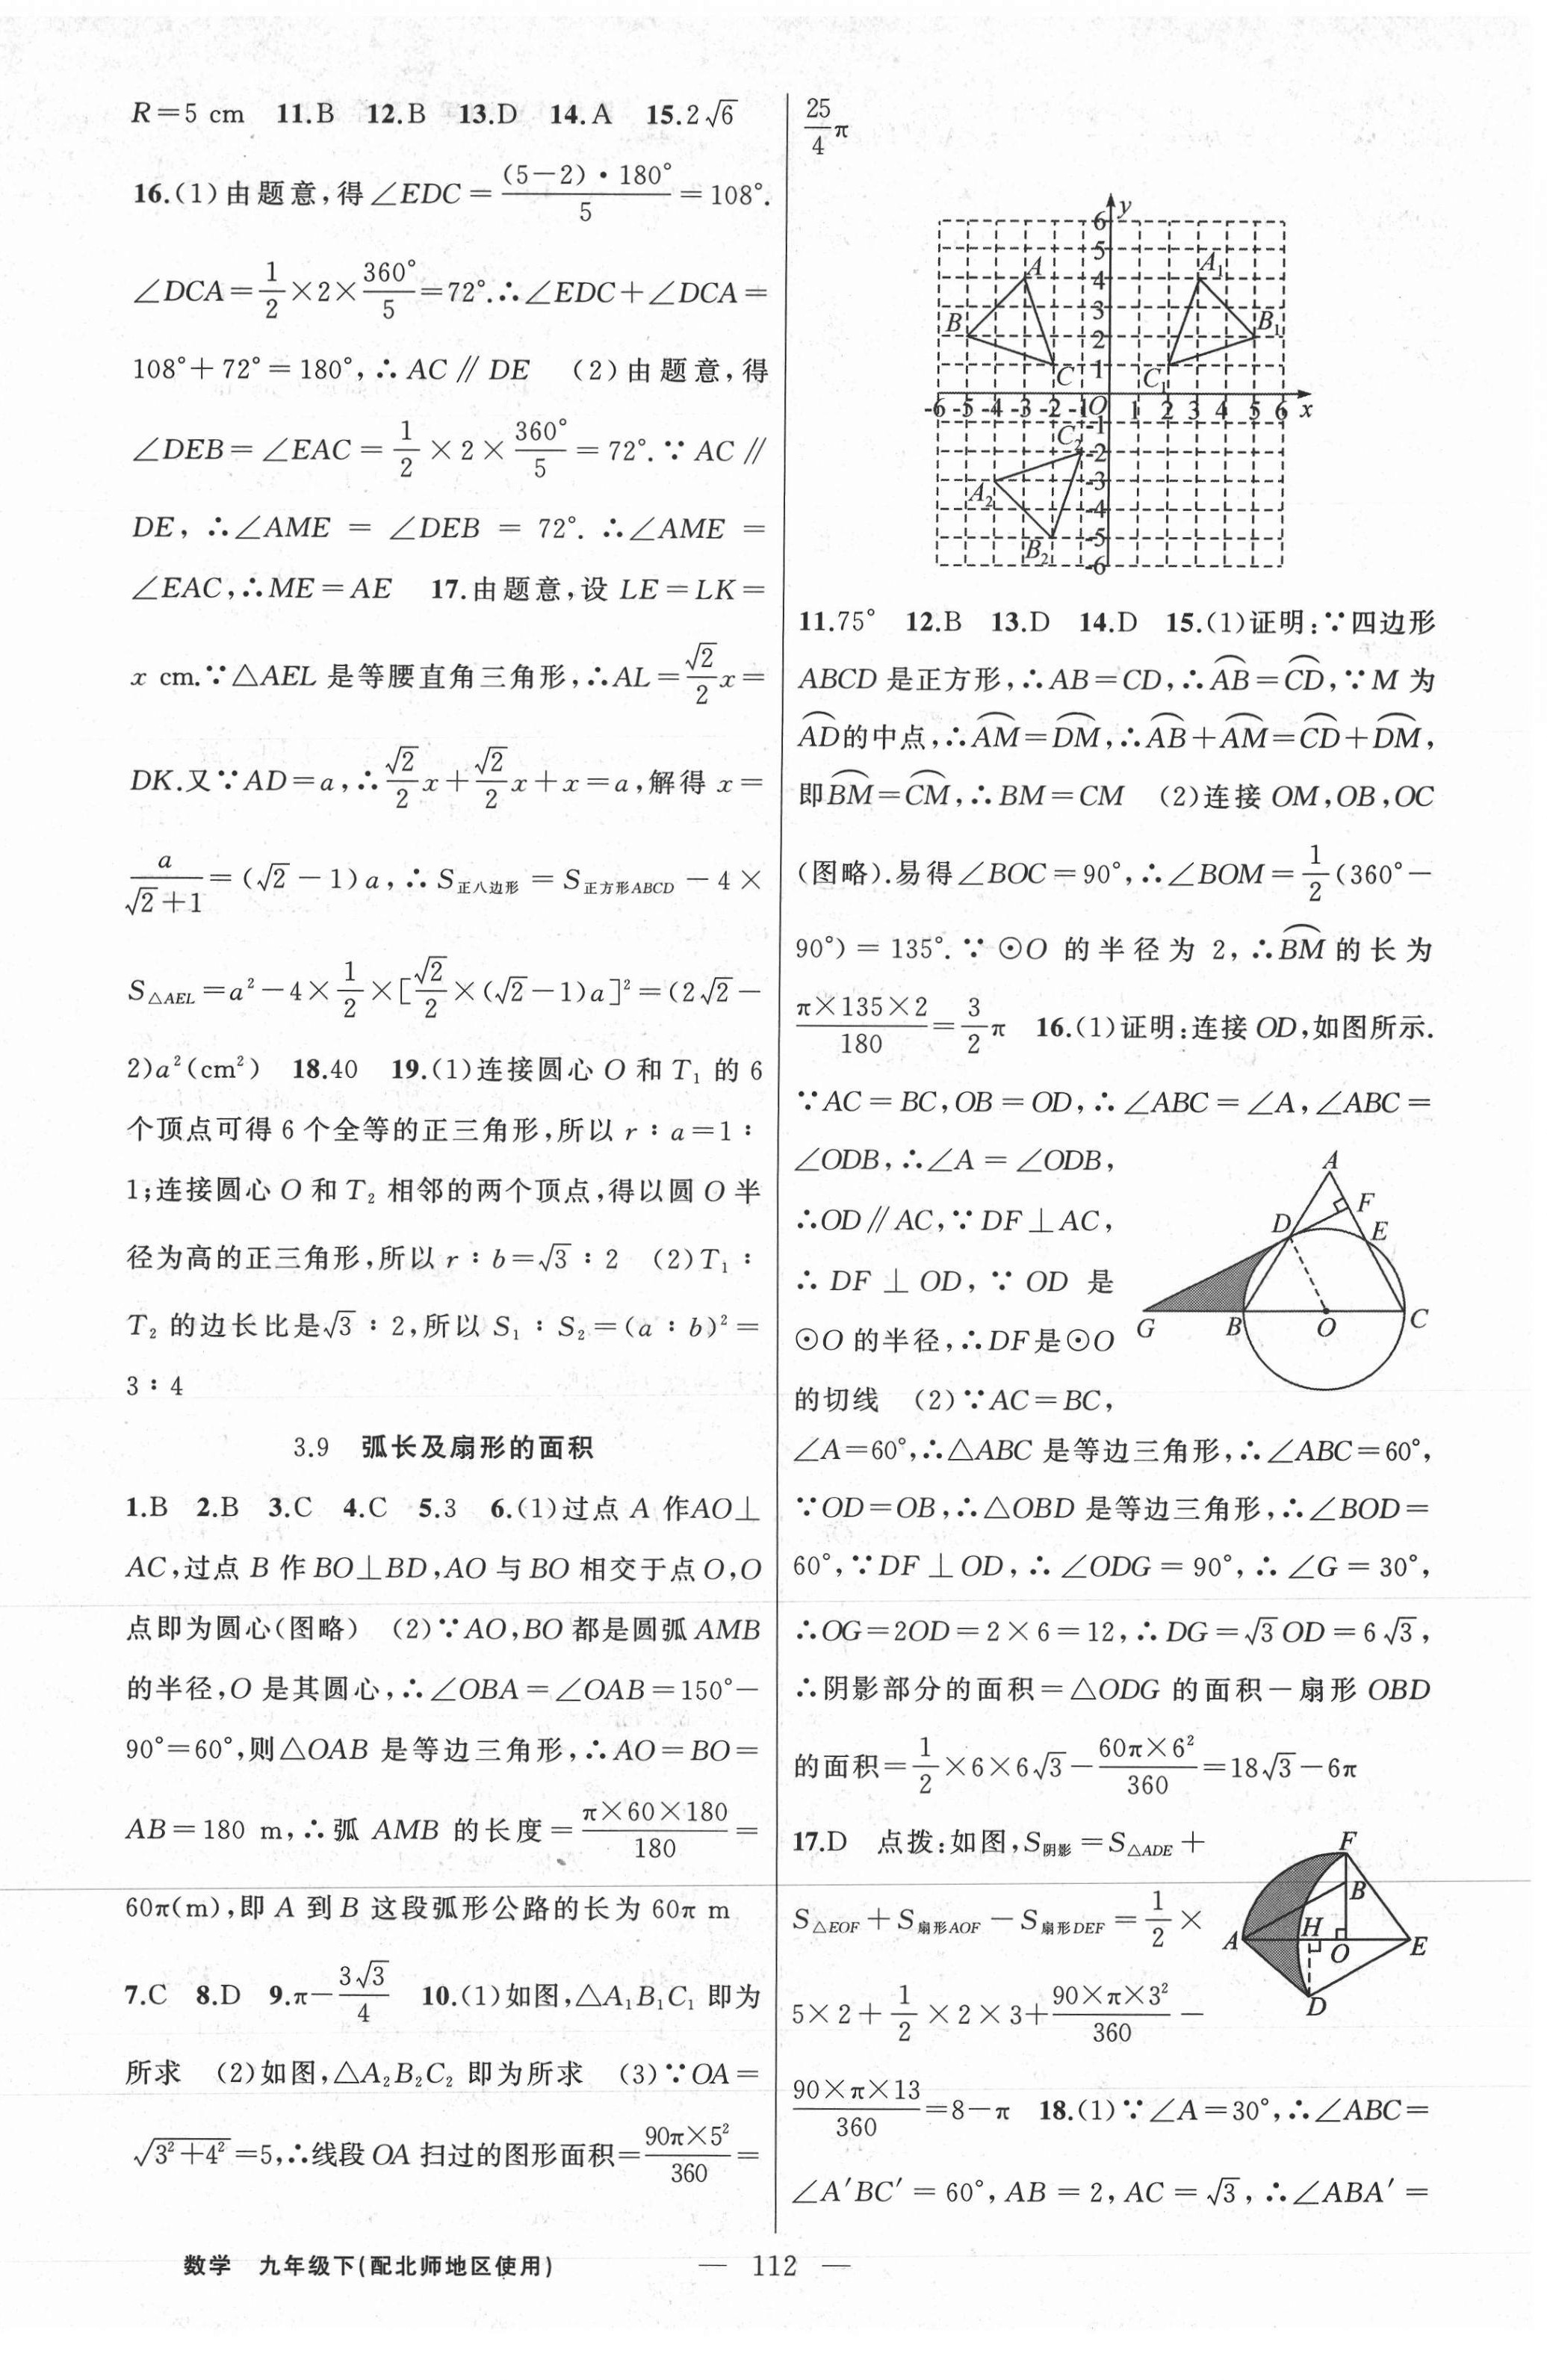 R=5 cm 11.B 12.B 13.D 14.A 15.2√6
16.(1)由题意,得∠EDC=(5-2)·180°/5=108°.
∠DCA=1/2×2×360°/5=72°.∴∠EDC+∠DCA=
108°+72°=180°,∴AC∥DE (2)由题意,得
∠DEB=∠EAC=1/2×2×360°/5=72°.∵AC∥
DE,∴∠AME=∠DEB=72°.∴∠AME=
∠EAC,∴ME=AE 17.由题意,设LE=LK=
x cm.∵△AEL是等腰直角三角形,∴AL=√2/2x=
DK.又∵AD=a,∴√2/2x+√2/2x+x=a,解得x=
a/(√2+1)=(√2-1)a,∴S正八边形=S正方形ABCD-4×
S△AEL=a²-4×1/2×[√2/2×(√2-1)a]²=(2√2-
2)a²(cm²) 18.40 19.(1)连接圆心O和T₁的6
个顶点可得6个全等的正三角形,所以r∶a=1∶
1;连接圆心O和T₂相邻的两个顶点,得以圆O半
径为高的正三角形,所以r∶b=√3∶2 (2)T₁∶
T₂的边长比是√3∶2,所以S₁∶S₂=(a∶b)²=
3∶4
3.9 弧长及扇形的面积
1.B 2.B 3.C 4.C 5.3 6.(1)过点A作AO⊥
AC,过点B作BO⊥BD,AO与BO相交于点O,O
点即为圆心(图略) (2)∵AO,BO都是圆弧AMB
的半径,O是其圆心,∴∠OBA=∠OAB=150°-
90°=60°,则△OAB是等边三角形,∴AO=BO=
AB=180 m,∴弧AMB的长度=π×60×180/180=
60π(m),即A到B这段弧形公路的长为60π m
7.C 8.D 9.π-3√3/4 10.(1)如图,△A₁B₁C₁即为
所求 (2)如图,△A₂B₂C₂即为所求 (3)∵OA=
√(3²+4²)=5,∴线段OA扫过的图形面积=90π×5²/360=
25/4π
y
6
5
A A₁ 4
3
B 2 B₁
C 1 C₁
-6 -5 -4 -3 -2 -1 O 1 2 3 4 5 6 x
-1
C₂ -2
-3
A₂ -4
-5
B₂ -6
11.75° 12.B 13.D 14.D 15.(1)证明:∵四边形
ABCD是正方形,∴AB=CD,∴⌒AB=⌒CD,∵M为
⌒AD的中点,∴⌒AM=⌒DM,∴⌒AB+⌒AM=⌒CD+⌒DM,
即⌒BM=⌒CM,∴BM=CM (2)连接OM,OB,OC
(图略).易得∠BOC=90°,∴∠BOM=1/2(360°-
90°)=135°.∵⊙O的半径为2,∴⌒BM的长为
π×135×2/180=3/2π 16.(1)证明:连接OD,如图所示.
∵AC=BC,OB=OD,∴∠ABC=∠A,∠ABC=
∠ODB,∴∠A=∠ODB,
∴OD∥AC,∵DF⊥AC,
∴DF⊥OD,∵OD是
⊙O的半径,∴DF是⊙O
的切线 (2)∵AC=BC,
A
F
D E
G B O C
∠A=60°,∴△ABC是等边三角形,∴∠ABC=60°,
∵OD=OB,∴△OBD是等边三角形,∴∠BOD=
60°,∵DF⊥OD,∴∠ODG=90°,∴∠G=30°,
∴OG=2OD=2×6=12,∴DG=√3OD=6√3,
∴阴影部分的面积=△ODG的面积-扇形OBD
的面积=1/2×6×6√3-60π×6²/360=18√3-6π
17.D 点拨:如图,S阴影=S△ADE+
S△EOF+S扇形AOF-S扇形DEF=1/2×
5×2+1/2×2×3+90×π×3²/360-
F
B
A H O E
D
90×π×13/360=8-π 18.(1)∵∠A=30°,∴∠ABC=
∠A′BC′=60°,AB=2,AC=√3,∴∠ABA′=
数学 九年级下(配北师地区使用) — 112 —